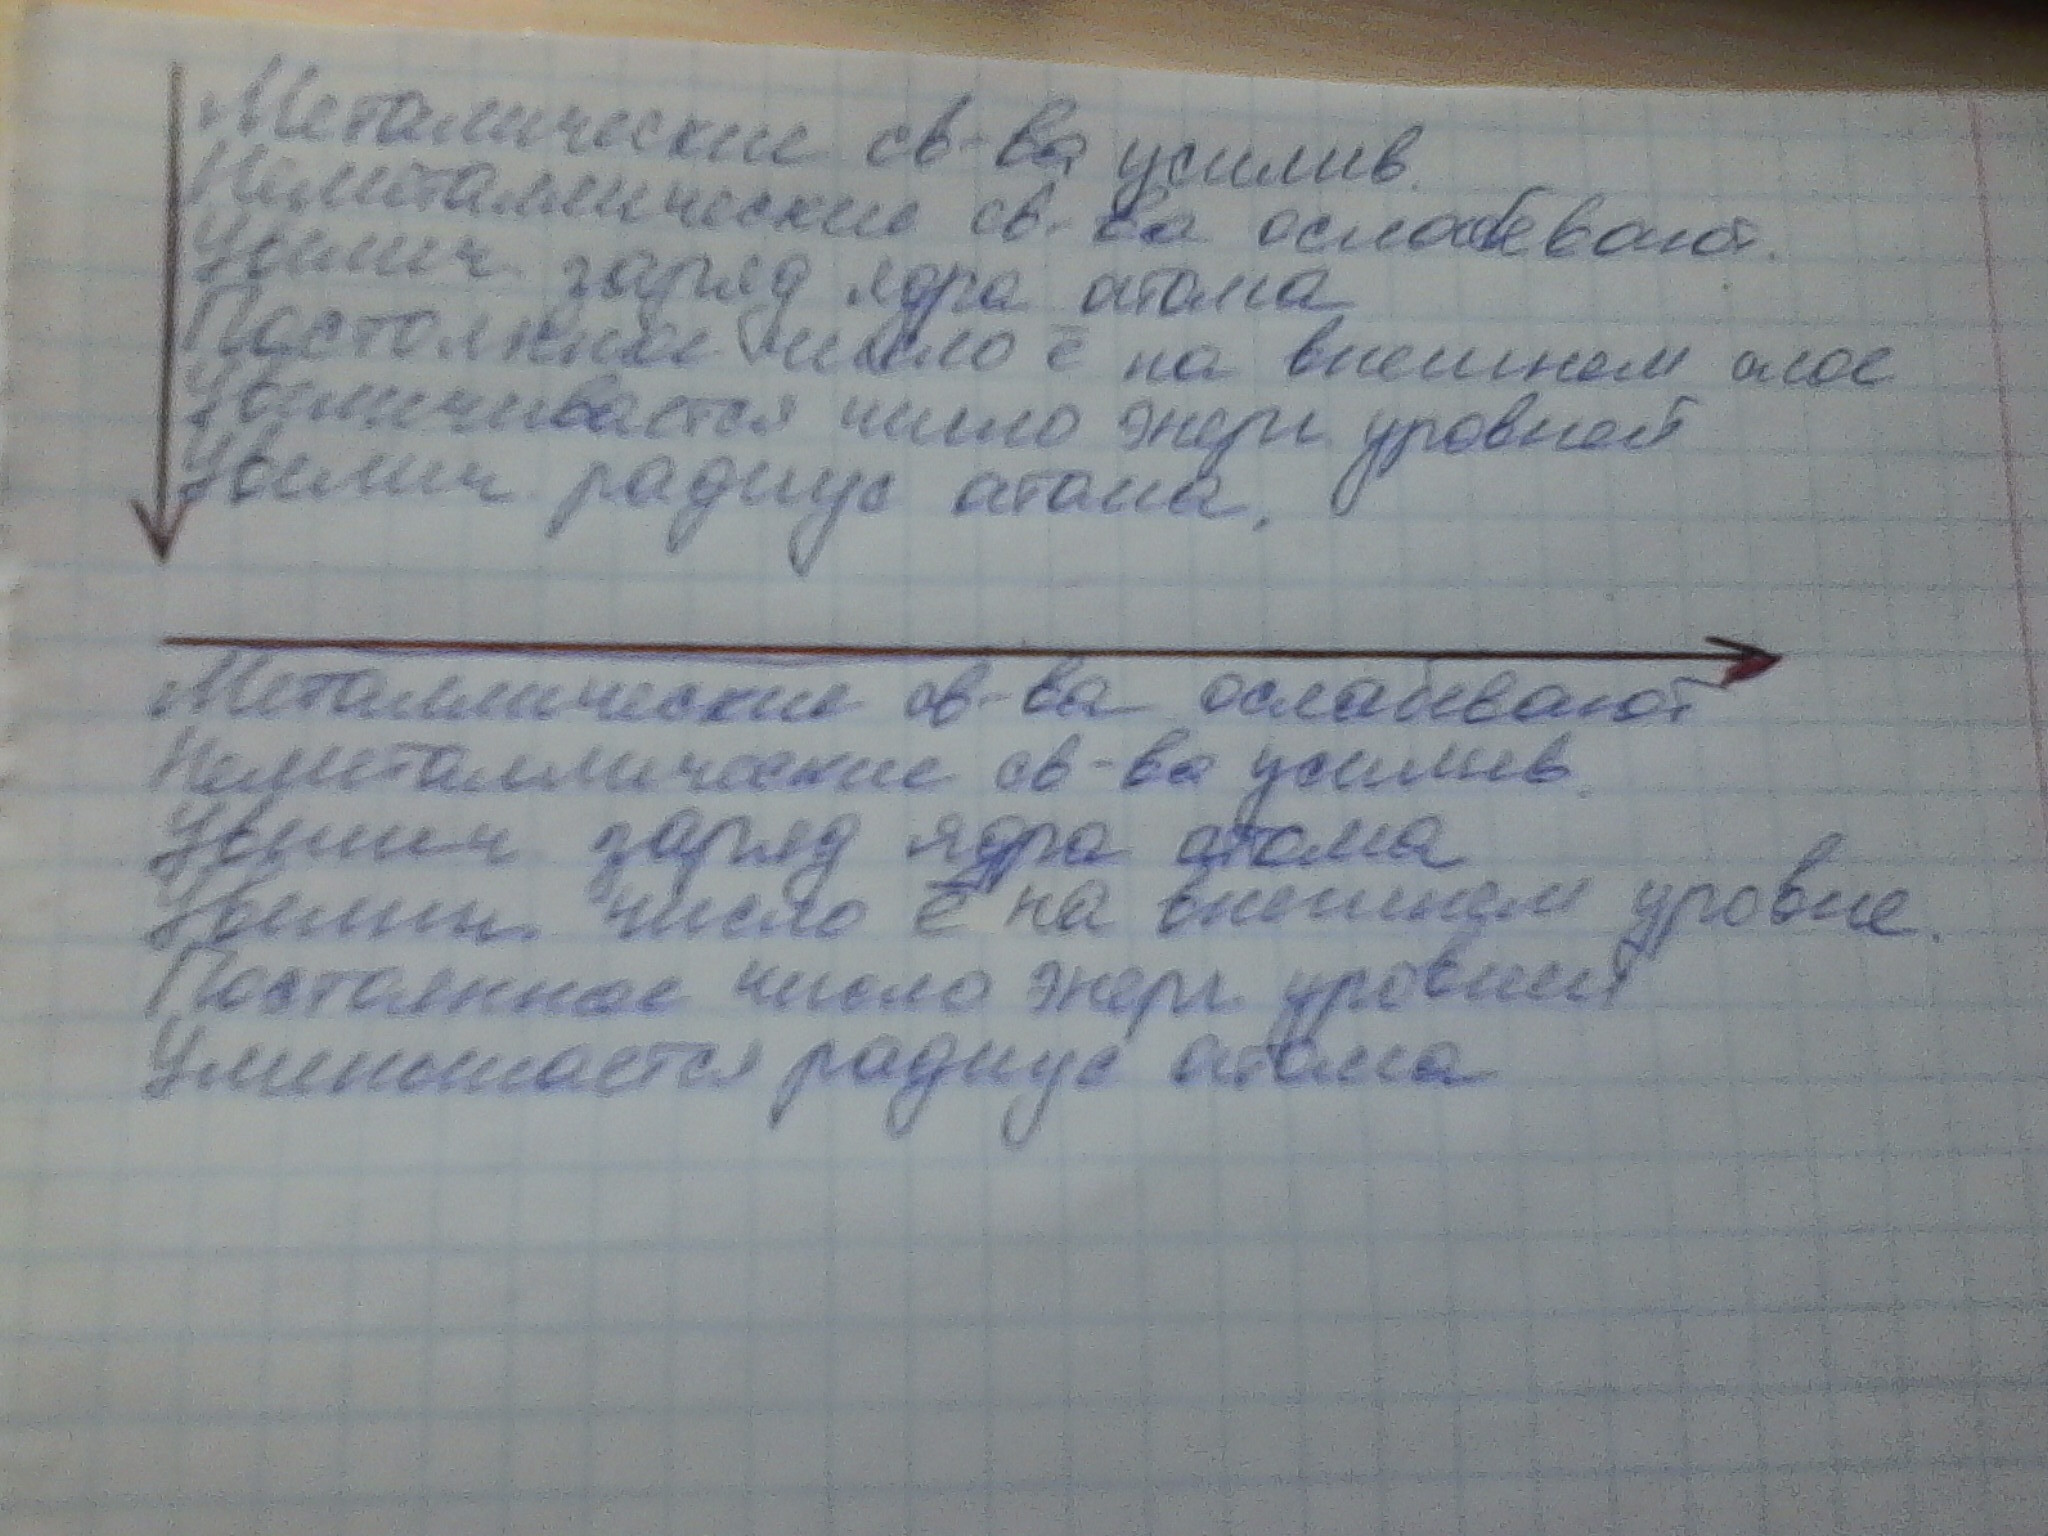 Металические св-ва усилив.
Неметаллические св-ва ослабевают.
Увелич заряд ядра атома
Постоянное число ē на внешнем слое
Увеличивается число энерг. уровней
Увелич радиус атома.
Металлические св-ва ослабевают
Неметаллические св-ва усилив.
Увелич заряд ядра атома
Увелич. число ē на внешнем уровне.
Постоянное число энерг уровней
Уменьшается радиус атома